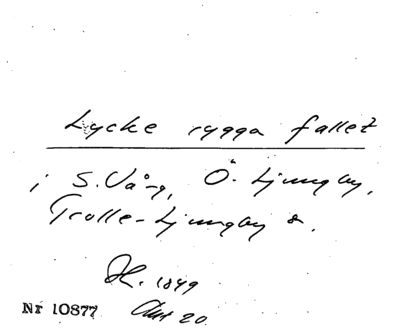 Lycke rygga fallet
i S. Vång, Ö. Ljungby,
Trolle-Ljungby
1849
Nr 10877 Akt 20